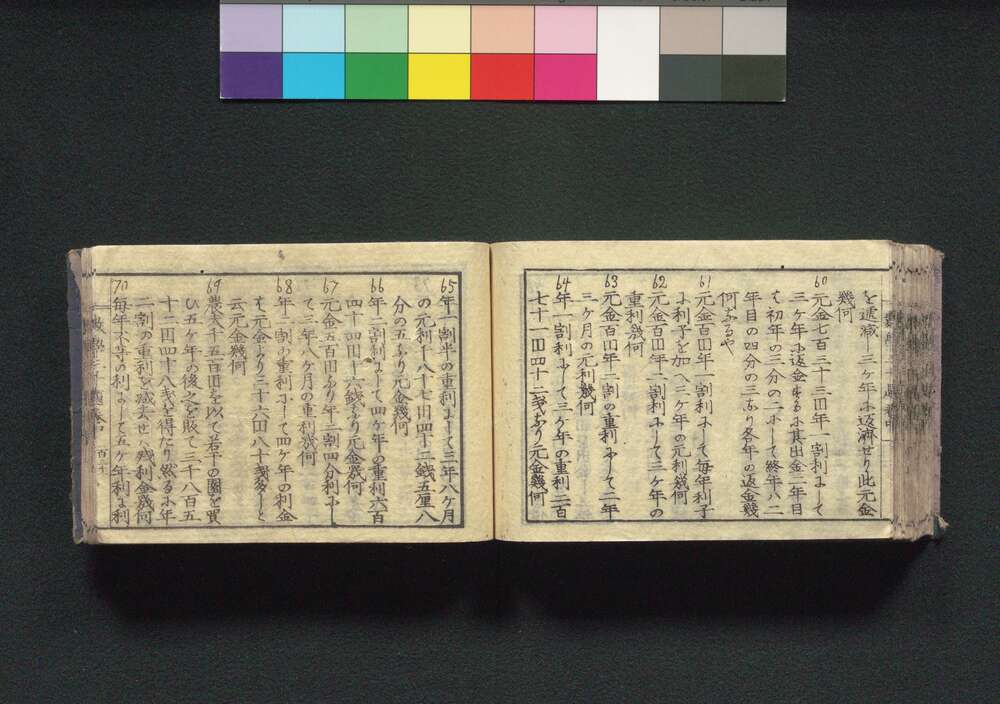 を逓減し三ケ年ニ返済せり此元金
幾何
60
元金七百三十三円年一割利にして
三ケ年に返金するに其出金二年目
は初年の三分の二にして終年ハ二
年目の四分の三なり各年の返金幾
何なるや
61
元金百円年一割利にして毎年利子
に利子を加へ三ケ年の元利幾何
62
元金百円年二割利にして三ケ年の
重利幾何
63
元金百円年二割の重利にして二年
三ケ月の元利幾何
64
年一割利にして三ケ年の重利二百
七十一円四十二銭なり元金幾何
65
年一割半の重利にして三年八ケ月
の元利八十七円四十二銭五厘八
分の五なり元金幾何
66
年一割利にして四ケ年の重利六百
四十四円十六銭なり元金幾何
67
元金五百円なり年二割四分利に
て三年八ケ月の重利幾何
68
年一割の重利にして四ケ年の利金
は元金より三十六円八十銭多しと
云元金幾何
69
農夫千五百円を以て若干の圃を買
ひ五ケ年の後之を販て三千八百五
十二円四十八銭を得たり然るに年
二割の重利を減去せハ残利金幾何
70
毎年不等の利にして五ケ年利は利